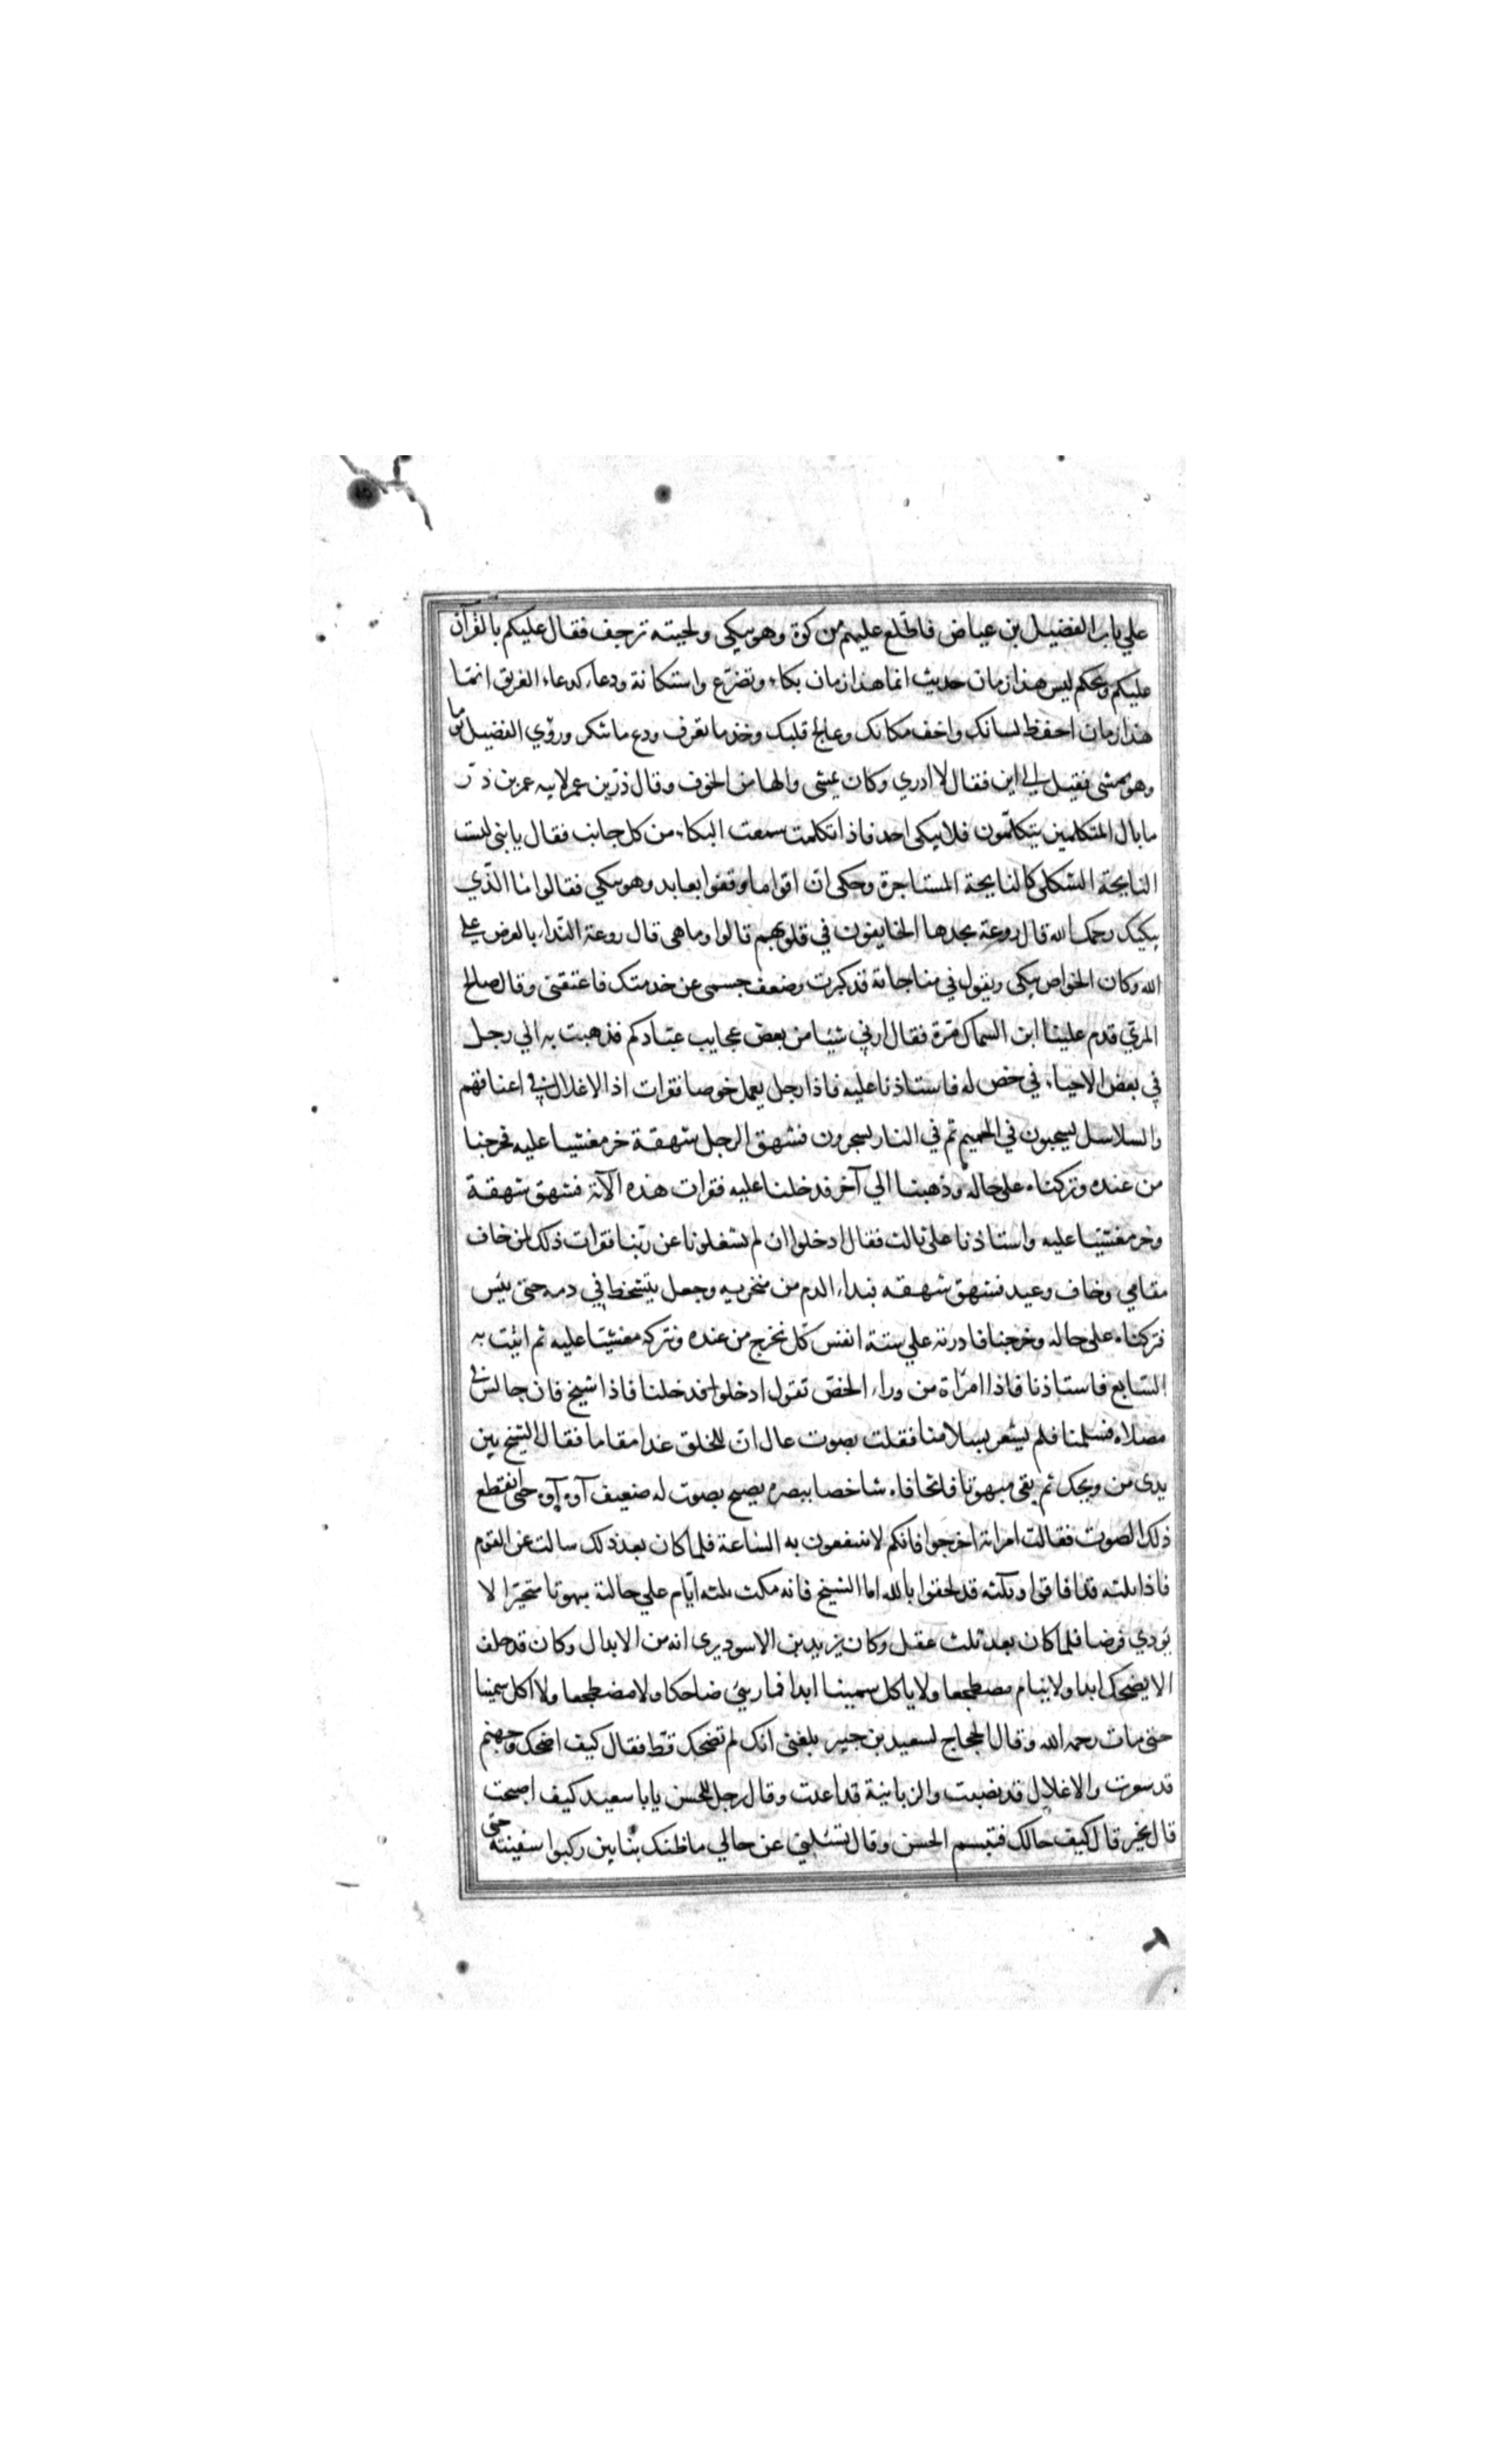 علي باب الفضيل بن عياض فاطلع عليهم من كوة وهو يبكي ولحيته ترجف فقال عليكم بالقرآن
عليكم ويحكم ليس هذا زمان حديث انما هذا زمان بكاء وتضرع واستكانة ودعاء كدعاء الغريق انما
هذا زمان احفظ لسانك واخف مكانك وعالج قلبك وخذ ما تعرف ودع ما تنكر ورؤي الفضيل يوما
وهو يمشي فقيل الي اين فقال لا ادري وكان يمشي والها من الخوف وقال ذر بن عمر لابيه عمر بن ذر
ما بال المتكلمين يتكلمون فلا يبكي احد فاذا تكلمت سمعت البكاء من كل جانب فقال يا بني ليست
النايحة الثكلي كالنايحة المستاجرة وحكي ان اقواما وقفوا بعابد وهو يبكي فقالوا ما الذي
يبكيك رحمك الله قال روعة يجدها الخايفون في قلوبهم قالوا وما هي قال روعة النداء بالعرض علي
الله وكان الخواص يبكي ويقول في مناجاته قد كبرت وضعف جسمي عن خدمتك فاعتقني وقال صالح
المري قدم علينا ابن السماك مرة فقال ارني شيئا من بعض عجايب عبادكم فذهبت به الي رجل
في بعض الاحياء في خص له فاستاذنا عليه فاذا رجل يعمل خوصا فقرات اذ الاغلال في اعناقهم
والسلاسل يسحبون في الحميم ثم في النار يسجرون فشهق الرجل شهقة خر مغشيا عليه فخرجنا
من عنده وتركناه علي حاله وذهبنا الي آخر فدخلنا عليه فقرات هذه الآية فشهق شهقة
وخر مغشيا عليه واستاذنا علي ثالث فقال ادخلوا ان لم تشغلونا عن ربنا فقرات ذلك لمن خاف
مقامي وخاف وعيد فشهق شهقه فبداء الدم من منخريه وجعل يتشحط في دمه حتي يبس
فتركناه علي حاله وخرجنا فادرته علي ستة انفس كل نخرج من عنده ونتركه مغشيا عليه ثم اتيت به
السابع فاستاذنا فاذا امراة من وراء الخص تقول ادخلوا فدخلنا فاذا شيخ فان جالس في
مصلاه فسلمنا فلم يشعر بسلامنا فقلت بصوت عال ان للخلق غدا مقاما فقال الشيخ بين
يدي من ويحك ثم بقي مبهوتا فاتحا فاه شاخصا ببصره يصيح بصوت له ضعيف آوه آوه حتي انقطع
ذلك الصوت فقالت امراته اخرجوا فانكم لا تنتفعون به الساعة فلما كان بعد ذلك سالت عن القوم
فاذا ثلثه قد افاقوا وثلثه قد لحقوا بالله اما الشيخ فانه مكث ثلثه ايام علي حالته مبهوتا متحيرا لا
يؤدي فرضا فلما كان بعد ثلث عقل وكان يزيد بن الاسود يري انه من الابدال وكان قد حلف
الا يضحك ابدا ولا ينام مضطجعا ولا ياكل سمينا ابدا فما رئي ضاحكا ولا مضطجعا ولا اكل سمينا
حتي مات رحمه الله وقال الحجاج لسعيد بن جبير بلغني انك لم تضحك قط فقال كيف اضحك وجهنم
قد سعرت والاغلال قد نصبت والزبانية قد اعدت وقال رجل للحسن يا با سعيد كيف اصبحت
قال بخير قال كيف حالك فتبسم الحسن وقال تسئلني عن حالي ما ظنك بناس ركبوا سفينته حتي